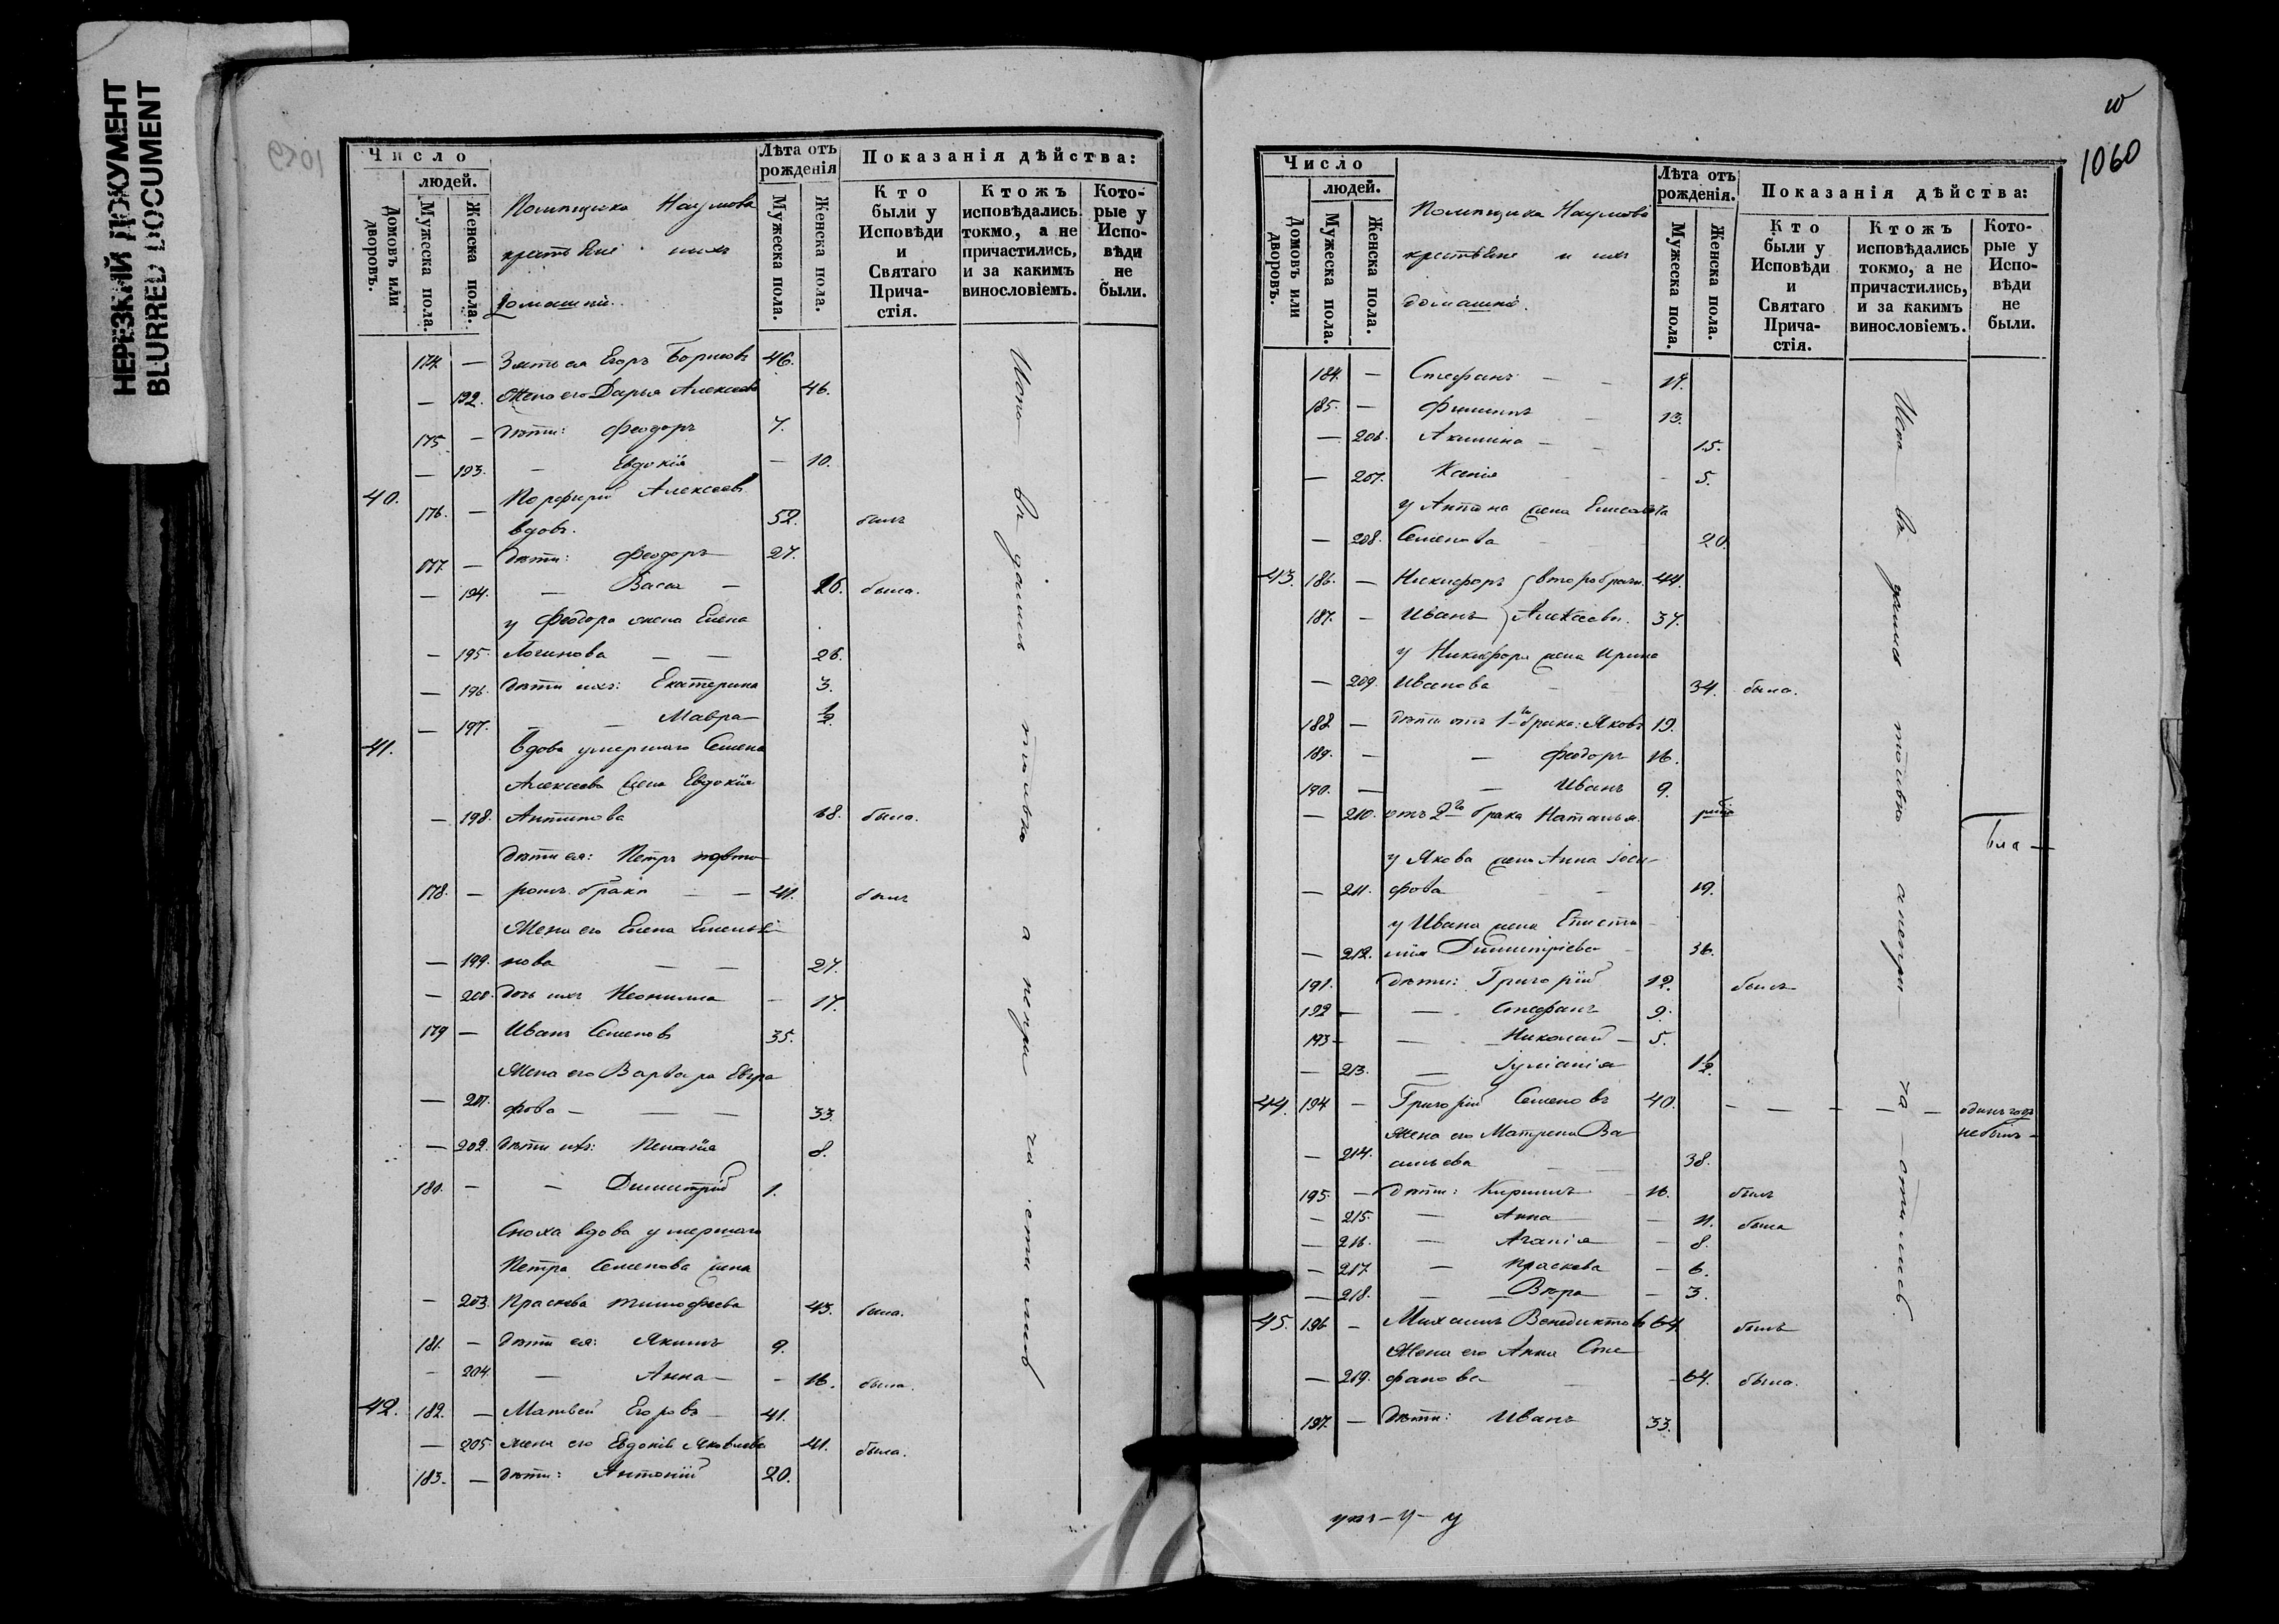 НЕРЕЗКИЙ ДОКУМЕНТ
BLURRED DOCUMENT
1059
Число
людей.
Домовъ или дворовъ.
Мужеска пола.
Женска пола.
Помѣщика Наумова
крестьяне ихъ
домашніе.
Лѣта отъ рожденія
Мужеска пола.
Женска пола.
Показанія дѣйства:
Кто были у Исповѣди и Святаго Причастія.
Ктожъ исповѣдались токмо, а не причастились, и за какимъ винословіемъ.
Которые у Исповѣди не были.
174. — Зять ея Егоръ Борисовъ 46.
— 192. Жена его Дарья Алексѣева 46.
175 — дѣти: Феодоръ 7.
— 193. — Евдокія — 10.
40. 176. — Порфирій Алексѣевъ
вдовъ. 52. былъ
177. — дѣти: Феодоръ 27.
— 194. — Васса — 16. была.
у Феодора жена Елена
— 195. Логинова — — 26.
— 196. дѣти ихъ: Екатерина 3.
— 197. — — Мавра 1/2.
41. Вдова умершаго Семена
Алексѣева жена Евдокія
— 198. Антипова 68. была.
дѣти ея: Петръ повто-
178. — ромъ бракѣ — — 41. былъ
Жена его Елена Емелья-
— 199. нова — — 27.
— 200. дочь ихъ Неонилла — 17.
179 — Иванъ Семеновъ 35.
Жена его Варвара Евгра-
— 201. фова — — — 33.
— 202. дѣти ихъ: Пелагія 8.
180. — — Димитрій 1.
Сноха вдова умершаго
Петра Семенова жена
— 203. Прасковья Тимофеева 43. была.
181. — дѣти ея: Якимъ 9.
— 204. — Анна — — 16. была.
42. 182. — Матвей Егоровъ — 41.
— 205 жена его Евдокія Яковлева 41. была.
183. — дѣти: Антоній 20.
1060
Число
людей.
Домовъ или дворовъ.
Мужеска пола.
Женска пола.
Помѣщика Наумова
крестьяне и ихъ
домашніе.
Лѣта отъ рожденія.
Мужеска пола.
Женска пола.
Показанія дѣйства:
Кто были у Исповѣди и Святаго Причастія.
Ктожъ исповѣдались токмо, а не причастились, и за какимъ винословіемъ.
Которые у Исповѣди не были.
184. — Стефанъ — — 17.
185. — Филиппъ — 13.
— 206. Акилина — — 15.
— 207. Ксенія — 5.
у Антона жена Елисавета
— 208. Семенова — 20.
43. 186. — Никифоръ второбрачн. 44.
187. — Иванъ Алексѣевы. 37.
у Никифора жена Ирина
— 209. Иванова — 34. была.
188 — дѣти отъ 1го брака: Яковъ 19.
189. — — Феодоръ 16.
190. — — Иванъ 9.
— 210. отъ 2го брака Наталья.
у Якова жена Анна Іоси-
— 211. фова — — 19.
у Ивана жена Еписти-
— 212. мія Димитріева — 36.
191. дѣти: Григорій 12. былъ
192 — — Стефанъ 9.
193 — — Николай — 5.
— 213. — Іуліанія 1 1/2.
44. 194 — Григорій Семеновъ 40. — — — — — одинъ годъ
не былъ —
Жена его Матрена Ва-
— 214. сильева — 38.
195 — дѣти: Кириллъ — 16. былъ
— 215. — Анна — 11. была
— 216. — Агапія — 8.
— 217 — Праскева — 6.
— 218. — Вѣра — 3.
45. 196 — Михаилъ Венедиктовъ 64. былъ
Жена его Анна Сте-
— 219. фанова — — 64. была.
197. — дѣти: Иванъ 33.